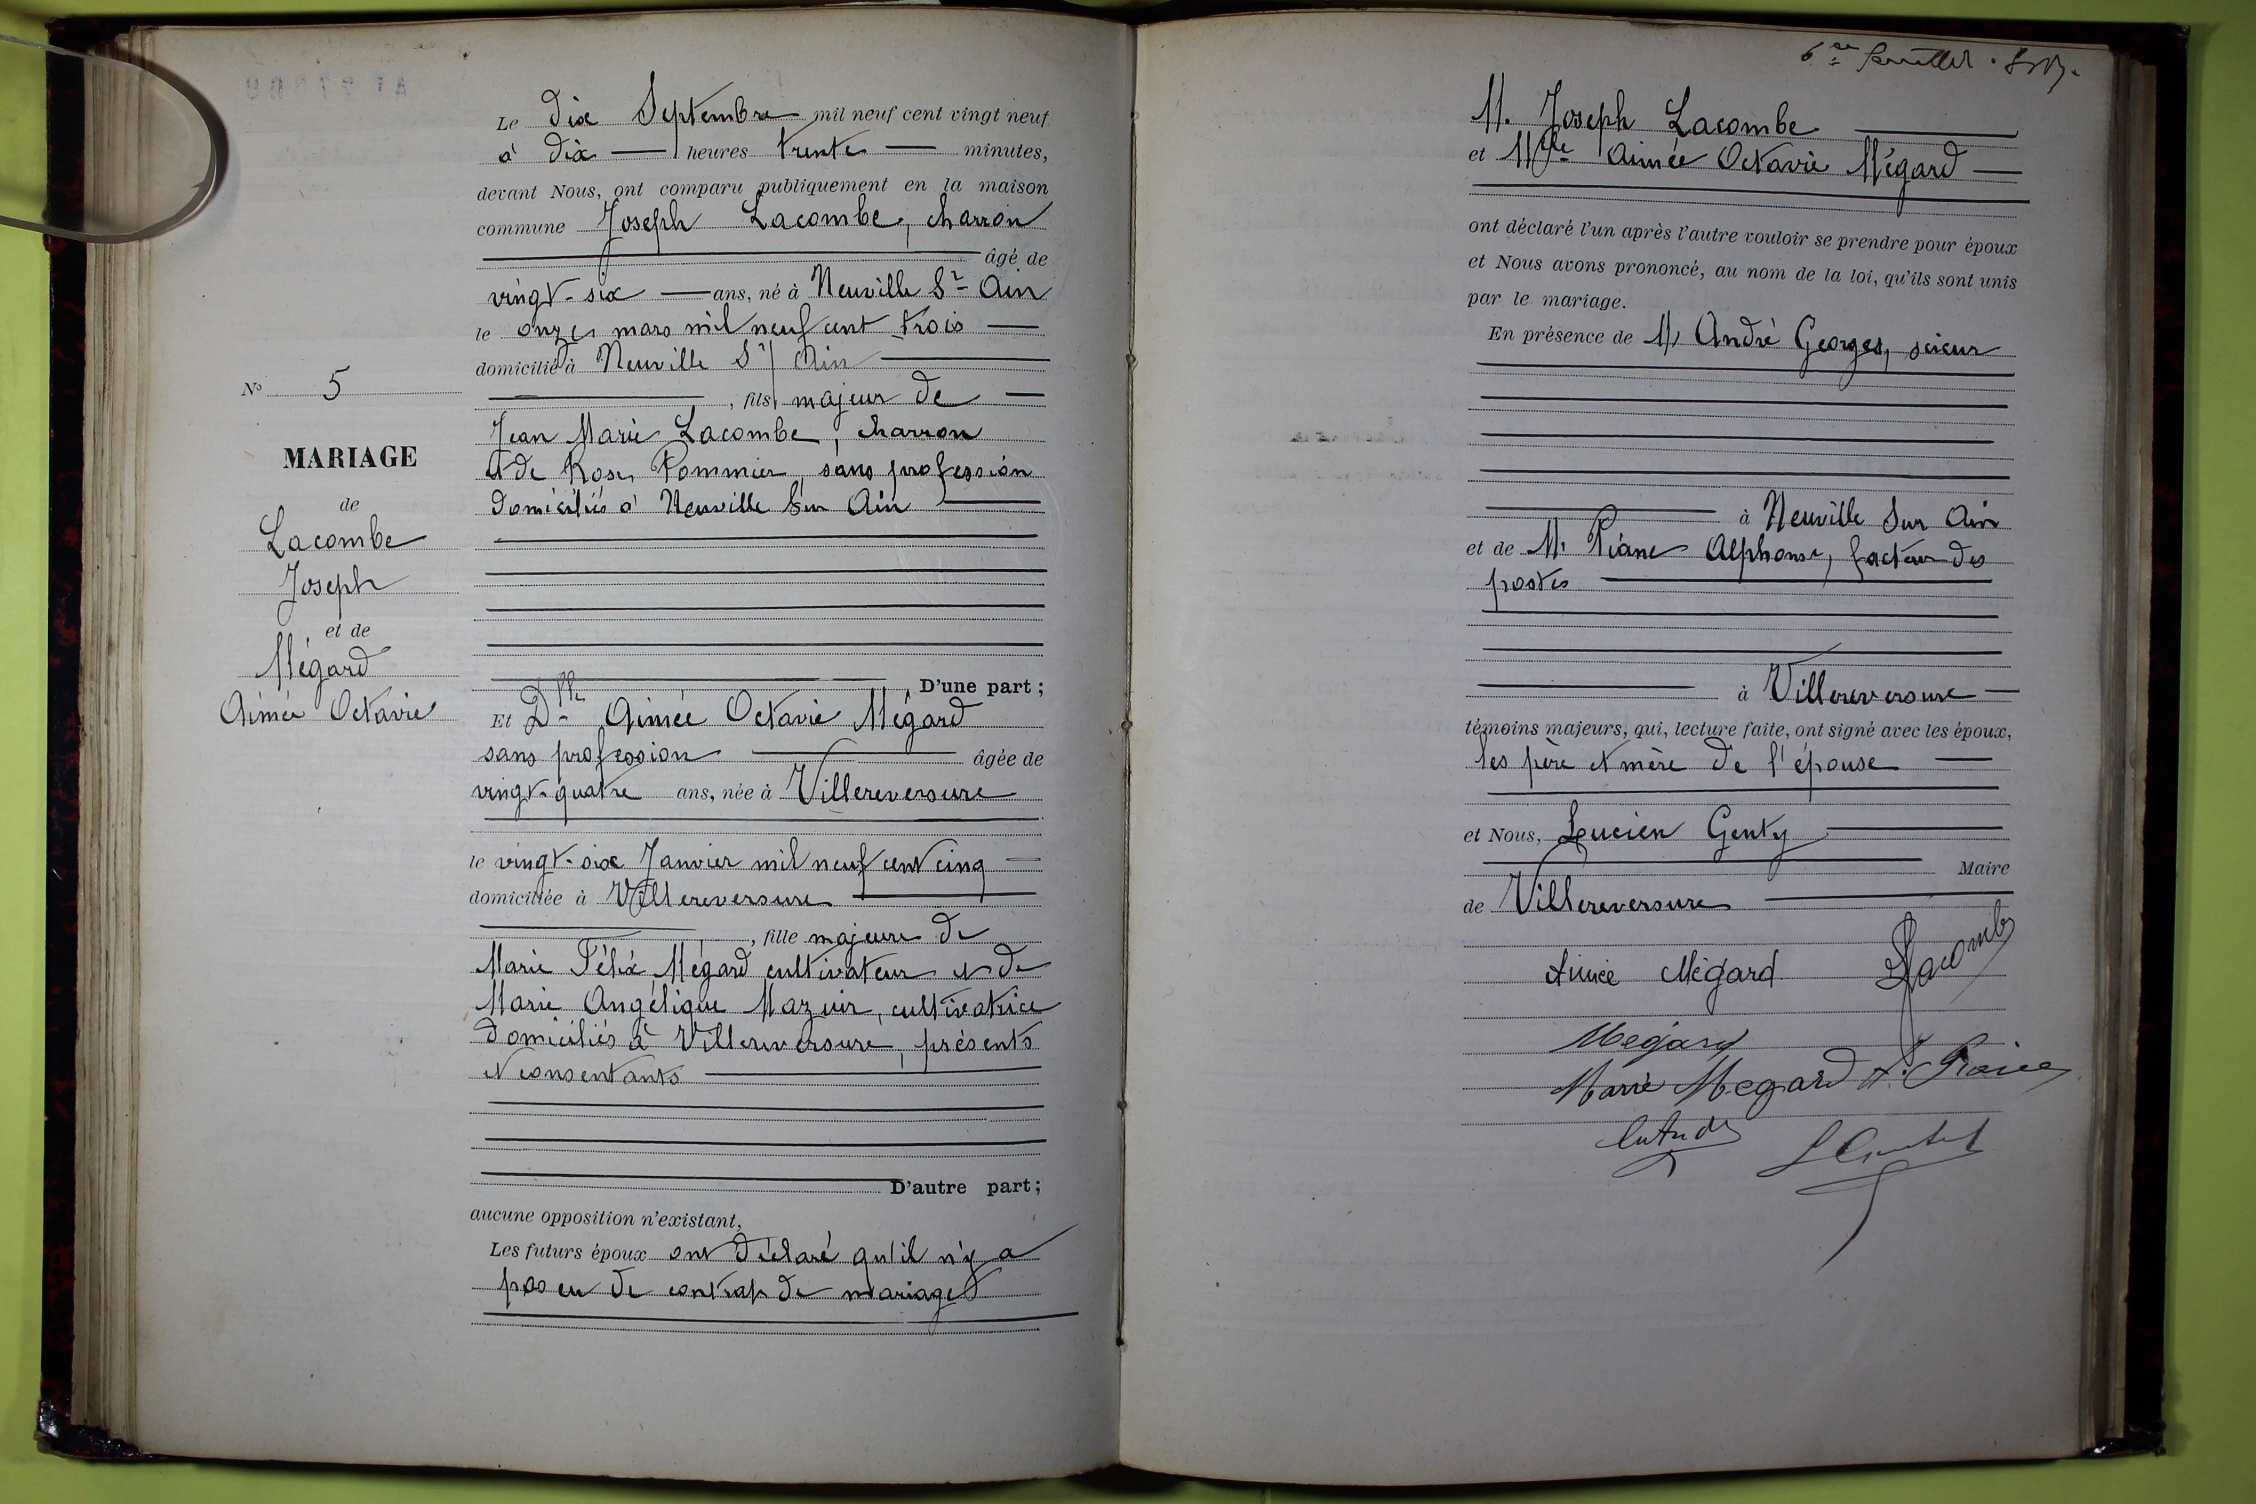 Le dix Septembre mil neuf cent vingt neuf
à dix heures trente minutes,
devant Nous, ont comparu publiquement en la maison
commune Joseph Lacombe, charron
âgé de
vingt-six ans, né à Neuville Sr Ain
le onze mars mil neuf cent trois
domicilié à Neuville Sr Ain
, fils majeur de
Jean Marie Lacombe, charron
et de Rose Pommier, sans profession
domiciliés à Neuville Sur Ain
No 5
MARIAGE
de
Lacombe
Joseph
et de
Mégard
Aimée Octavie
D'une part ;
Et Dlle Aimée Octavie Mégard
sans profession âgée de
vingt-quatre ans, née à Villereversure
le vingt-six Janvier mil neuf cent cinq
domiciliée à Villereversure
, fille majeure de
Marie Félix Mégard cultivateur et de
Marie Angélique Mazuir, cultivatrice
domiciliés à Villereversure, présents
et consentants
D'autre part ;
aucune opposition n'existant,
Les futurs époux ont déclaré qu'il n'y a
pas eu de contrat de mariage
M. Joseph Lacombe
et Mlle Aimée Octavie Mégard
ont déclaré l'un après l'autre vouloir se prendre pour époux
et Nous avons prononcé, au nom de la loi, qu'ils sont unis
par le mariage.
En présence de M. André Georges, scieur
à Neuville Sur Ain
et de Mr Alphonse, facteur des
postes
à Villereversure
témoins majeurs, qui, lecture faite, ont signé avec les époux,
les père et mère de l'épouse
et Nous, Lucien Genty
Maire
de Villereversure
Aimée Mégard Lacombe
Megard
Marie Megard